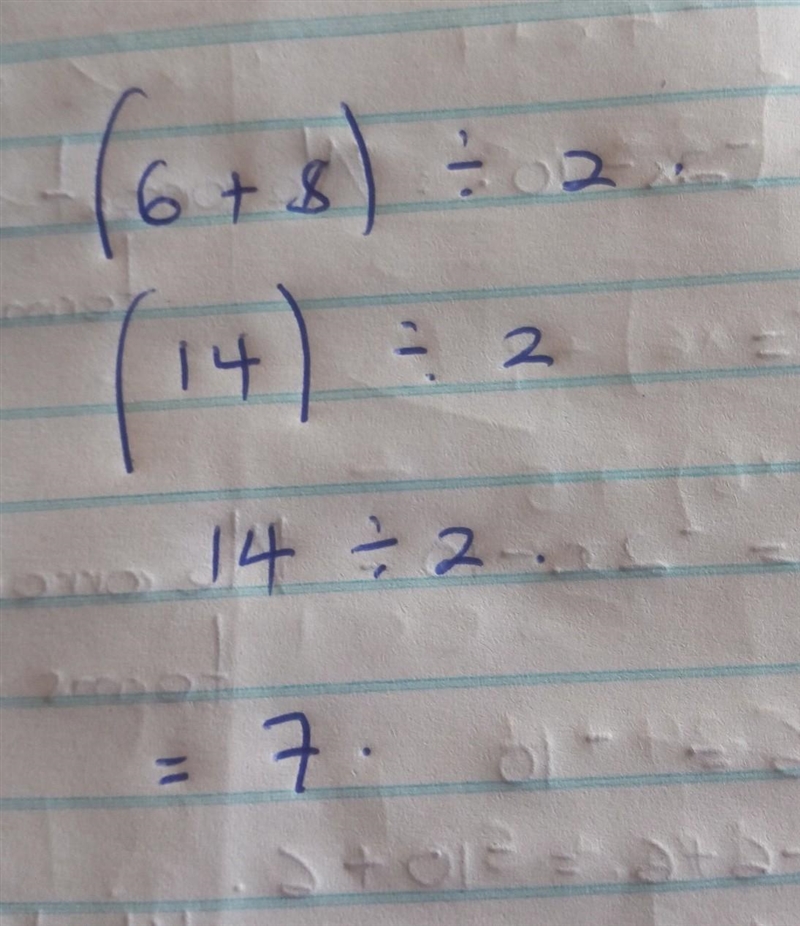 (6 + 8) ÷ 2.
(14) ÷ 2
14 ÷ 2.
= 7.